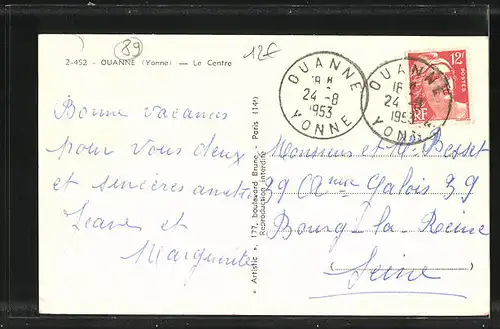 2-452 - OUANNE (Yonne) — Le Centre
89
12€
OUANNE
18 H
24 -8
1953
YONNE
OUANNE
18 H
24 -8
1953
YONNE
12F
POSTES
RF
Bonne vacances
pour vous deux
et sincères
Jeanne et
Marguerite
« Artistic », 177, boulevard Brune, - Paris (14e)
Reproduction interdite
Monsieur et M. Besset
39 Galois 39
Bourg-la-Reine
(
)
Seine